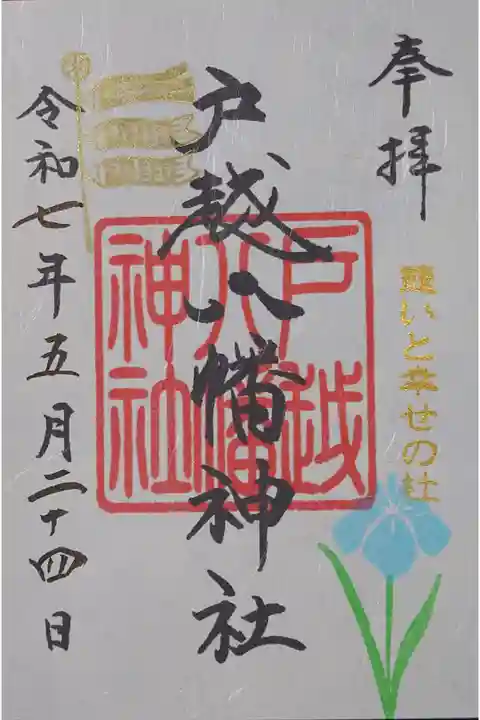 奉拝
願いと幸せの社
戸越八幡神社
戸越
八幡
神社
令和七年五月二十四日